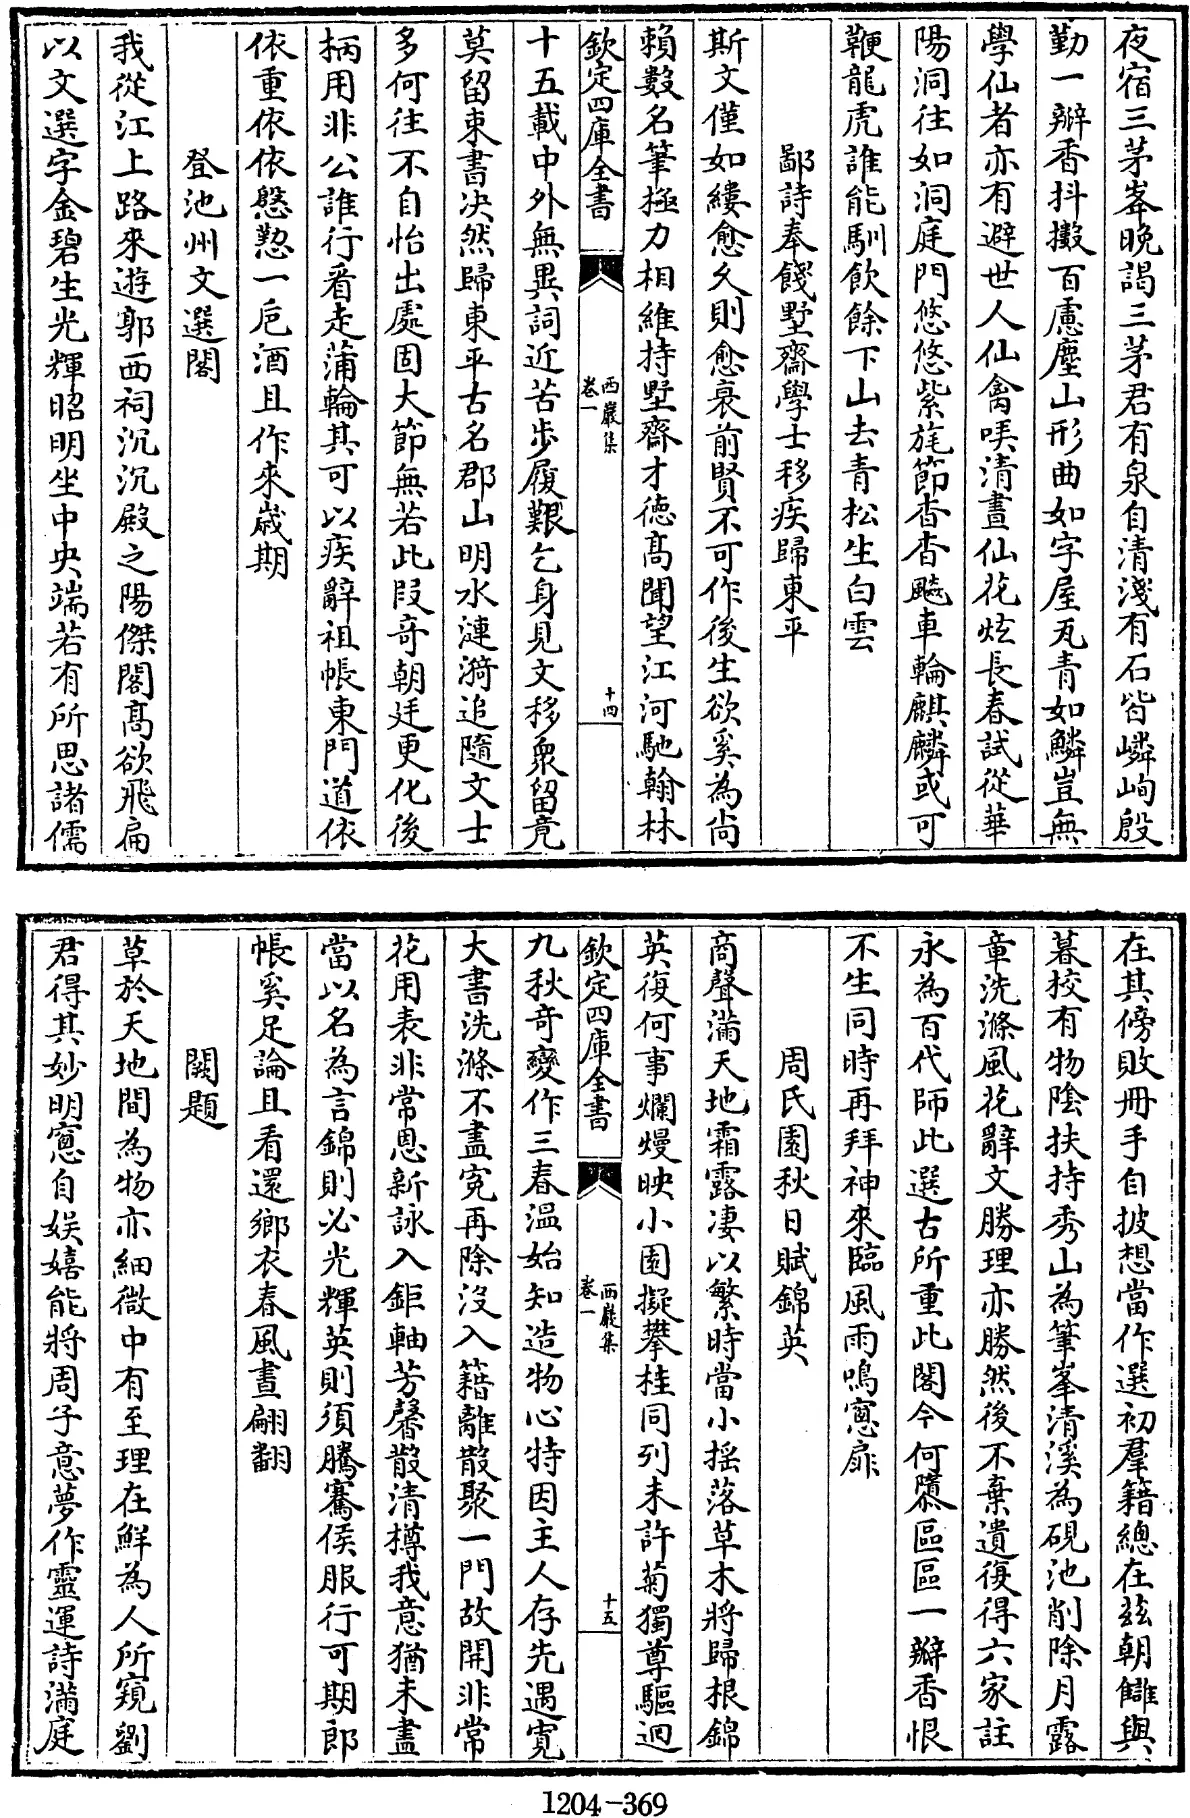 夜宿三茅峯晚謁三茅君有泉自清淺有石皆嶙峋殷
勤一瓣香抖擻百慮塵山形曲如字屋瓦青如鱗豈無
學仙者亦有避世人仙禽唳清晝仙花炫長春試從華
陽洞往如洞庭門悠悠紫旄節杳杳飈車輪麒麟或可
鞭龍虎誰能馴飲餘下山去青松生白雲
鄙詩奉餞墅齋學士移疾歸東平
斯文僅如縷愈久則愈衰前賢不可作後生欲奚為尚
賴數名筆極力相維持墅齋才德髙聞望江河馳翰林
欽定四庫全書
西巖集
卷一
十四
十五載中外無異詞近苦步履艱乞身見文移衆留竟
莫留束書決然歸東平古名郡山明水漣漪追隨文士
多何往不自怡出處固大節無若此段奇朝廷更化後
柄用非公誰行看走蒲輪其可以疾辭祖帳東門道依
依重依依慇懃一卮酒且作來歲期
登池州文選閣
我從江上路來遊郭西祠沉沉殿之陽傑閣髙欲飛扁
以文選字金碧生光輝昭明坐中央端若有所思諸儒
在其傍敗冊手自披想當作選初羣籍總在兹朝讎與
暮校有物陰扶持秀山為筆峯清溪為硯池削除月露
章洗滌風花辭文勝理亦勝然後不棄遺復得六家註
永為百代師此選古所重此閣今何隳區區一瓣香恨
不生同時再拜神來臨風雨鳴窻扉
周氏園秋日賦錦英
商聲滿天地霜露凄以繁時當小揺落草木將歸根錦
英復何事爛熳映小園擬攀桂同列未許菊獨尊驅迴
欽定四庫全書
西巖集
卷一
十五
九秋奇變作三春温始知造物心特因主人存先遇寛
大書洗滌不盡寃再除没入籍離散聚一門故開非常
花用表非常恩新詠入鉅軸芳馨散清樽我意猶未盡
當以名為言錦則必光輝英則須騰騫侯服行可期郎
帳奚足論且看還鄉衣春風晝翩翻
闕題
草於天地間為物亦細微中有至理在鮮為人所窺劉
君得其妙明窻自娱嬉能將周子意夢作靈運詩滿庭
1204-369